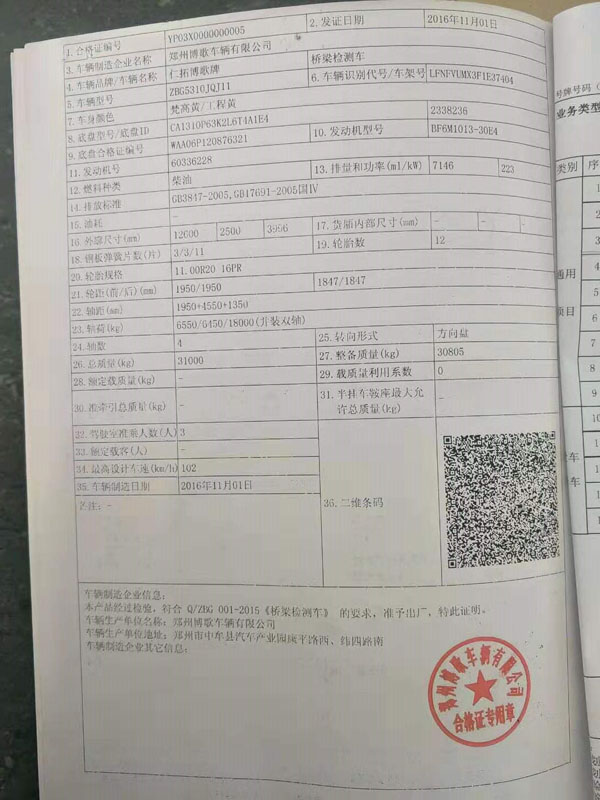 1.合格证编号 YP03X0000000005 2.发证日期 2016年11月01日
3.车辆制造企业名称 郑州博歌车辆有限公司
4.车辆品牌/车辆名称 仁拓博歌牌 桥梁检测车
5.车辆型号 ZBG5310JQJ11 6.车辆识别代号/车架号 LFNFVUMX3F1E37404
7.车身颜色 梵高黄/工程黄
8.底盘型号/底盘ID CA1310P63K2L6T4A1E4 2338236
9.底盘合格证编号 WAA06P120876321 10.发动机型号 BF6M1013-30E4
11.发动机号 60336228
12.燃料种类 柴油 13.排量和功率(ml/kW) 7146 223
14.排放标准 GB3847-2005,GB17691-2005国Ⅳ
15.油耗 -
16.外廓尺寸(mm) 12000 2500 3996 17.货厢内部尺寸(mm) - - -
18.钢板弹簧片数(片) 3/3/11 19.轮胎数 12
20.轮胎规格 11.00R20 16PR
21.轮距(前/后)(mm) 1950/1950 1847/1847
22.轴距(mm) 1950+4550+1350
23.轴荷(kg) 6550/6450/18000(并装双轴)
24.轴数 4 25.转向形式 方向盘
26.总质量(kg) 31000 27.整备质量(kg) 30805
28.额定载质量(kg) - 29.载质量利用系数 0
30.准牵引总质量(kg) - 31.半挂车鞍座最大允
许总质量(kg) -
32.驾驶室准乘人数(人) 3
33.额定载客(人) -
34.最高设计车速(km/h) 102
35.车辆制造日期 2016年11月01日
36.二维条码
备注:-
车辆制造企业信息:
本产品经过检验,符合 Q/ZBG 001-2015《桥梁检测车》 的要求,准予出厂,特此证明。
车辆生产单位名称:郑州博歌车辆有限公司
车辆生产单位地址:郑州市中牟县汽车产业园康平路西、纬四路南
车辆制造企业其它信息:
郑州博歌车辆有限公司
合格证专用章
号牌号码(
业务类型
类别 序
1
2
3
通用 4
项目